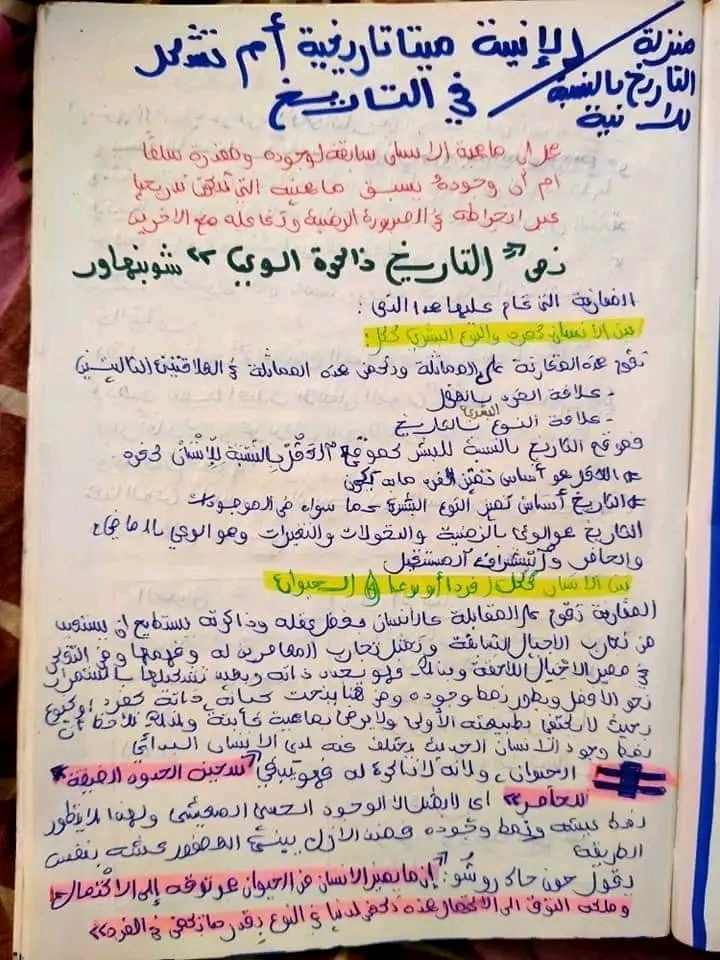 منزلة التاريخ بالنسبة للإنية
الإنية ميتا تاريخية أم تشكل
في التاريخ
هل أن ماهية الإنسان سابقة لوجوده ومقدرة سلفا
أم أن وجوده يسبق ماهيته التي تتحقق تدريجيا
عبر انخراطه في الصيرورة الزمنية وتفاعله مع الآخرين
نص "التاريخ ذاكرة الوعي" شوبنهاور
المقارنة التي قام عليها هذا النص :
بين الإنسان كفرد والنوع البشري ككل:
تقوم هذه المقارنة على المماثلة وتخص هذه المماثلة في العلاقتين التاليتين
- علاقة الفرد بالعقل
- علاقة النوع البشري بالتاريخ
فموقع التاريخ بالنسبة للبشر كموقع العقل بالنسبة للإنسان كفرد
* العقل هو أساس تميز الفرد
* التاريخ أساس تميز النوع البشري عما سواه من الموجودات
التاريخ هو الوعي بالزمنية والتحولات والتغيرات وهو الوعي بالماضي
والحاضر واستشراف المستقبل
بين الإنسان ككل (فردا أو نوعا) و الحيوان
المقارنة تقوم على المقابلة فالإنسان بفضل عقله وذاكرته يستطيع أن يستفيد
من تجارب الأجيال السابقة وتمثل تجارب المعاصرين له وفهمها ومن التوقي
في مصير الأجيال اللاحقة وبذلك فهو يعدد ذاته ويعيد تشكيلها باستمرار
نحو الأفضل ويطور نمط وجوده ومن هنا ينحت كيانه، ذاته كفرد وكنوع
بحيث لا يكتفي بطبيعته الأولى ولا يرضى بماهية ثابتة ولذلك نلاحظ أن
نمط وجود الإنسان الحديث يختلف عنه لدى الإنسان البدائي
الحيوان، ولأنه لا ذاكرة له فهو يبقى "سجين الحدود الضيقة
للحاضر" أي لا يتمثل إلا الوجود الحسي المعيشي ولهذا لا يتطور
نمط عيشه ونمط وجوده فمنذ الأزل يبني العصفور عشه بنفس
الطريقة
يقول جون جاك روسو: "إن ما يميز الإنسان عن الحيوان هو توقه إلى الاكتمال
وملكة التوق إلى الاكتمال هذه تكمن لدينا في النوع بقدر ما تكمن في الفرد"